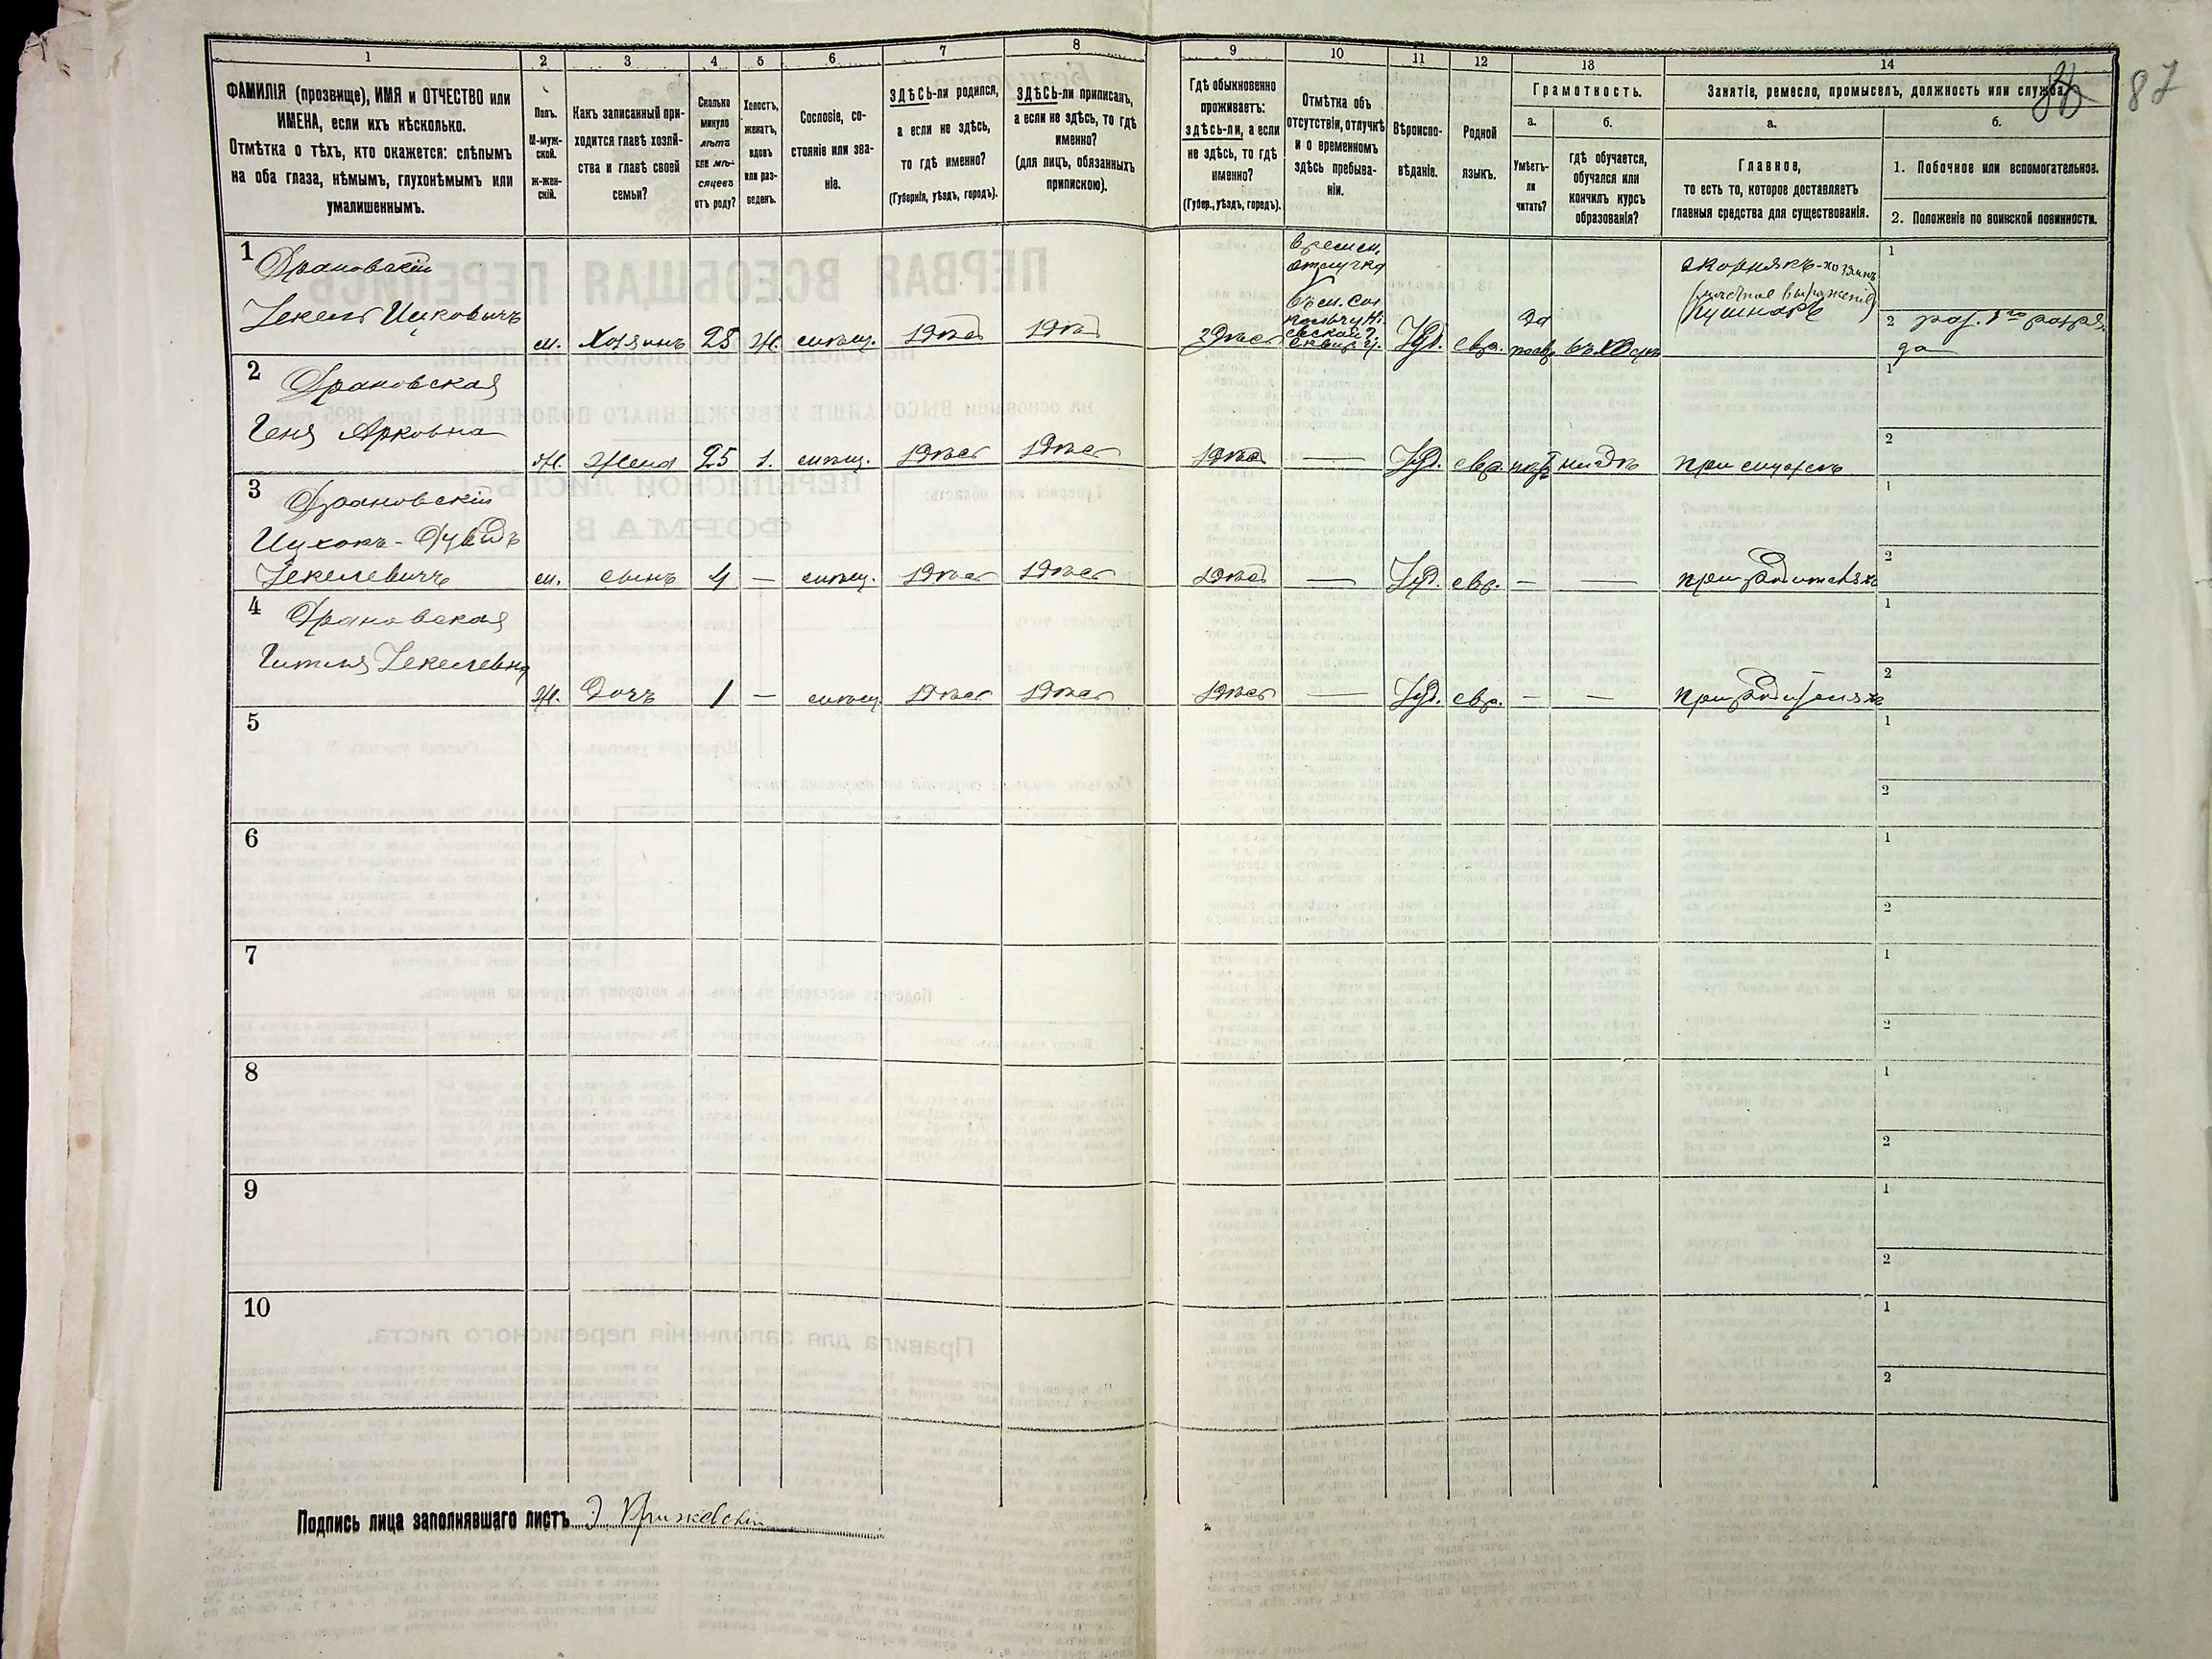 87
1
2
3
4
5
6
7
8
9
10
11
12
13
14
ФАМИЛІЯ (прозвище), ИМЯ и ОТЧЕСТВО или
ИМЕНА, если ихъ нѣсколько.
Отмѣтка о тѣхъ, кто окажется: слѣпымъ
на оба глаза, нѣмымъ, глухонѣмымъ или
умалишеннымъ.
Полъ.
М-муж-
ской.
Ж-жен-
скій.
Какъ записанный при-
ходится главѣ хозяй-
ства и главѣ своей
семьи?
Сколько
минуло
лѣтъ
или мѣ-
сяцевъ
отъ роду?
Холостъ,
женатъ,
вдовъ
или раз-
веденъ.
Сословіе, со-
стояніе или зва-
ніе.
ЗДѢСЬ-ли родился,
а если не здѣсь,
то гдѣ именно?
(Губернія, уѣздъ, городъ).
ЗДѢСЬ-ли приписанъ,
а если не здѣсь, то гдѣ
именно?
(для лицъ, обязанныхъ
припискою).
Гдѣ обыкновенно
проживаетъ:
здѣсь-ли, а если
не здѣсь, то гдѣ
именно?
(Губер., уѣздъ, городъ).
Отмѣтка объ
отсутствіи, отлучкѣ
и о временномъ
здѣсь пребыва-
ніи.
Вѣроиспо-
вѣданіе.
Родной
языкъ.
Грамотность.
а.
Умѣетъ-
ли
читать?
б.
гдѣ обучается,
обучался или
кончилъ курсъ
образованія?
Занятіе, ремесло, промыселъ, должность или служба.
а.
Главное,
то есть то, которое доставляетъ
главныя средства для существованія.
б.
1. Побочное или вспомогательное.
2. Положеніе по воинской повинности.
1
Драновскій
Іекель Ицковичъ
м. Хозяинъ 28 Ж. мѣщ. здѣсь здѣсь здѣсь
времен.
отлучка
Іуд. евр.
да
скорнякъ-хозяинъ
(мѣстное выраженіе)
Кушнаръ
1
2
2
Драновская
Геня Арковна
Ж. Жена 25 мѣщ. здѣсь здѣсь здѣсь — Іуд. евр.
1
2
3
Драновскій
Ицхокъ-Дувидъ
Іекелевичъ
м. сынъ 4 — мѣщ. здѣсь здѣсь здѣсь — Іуд. евр. — — при родителяхъ
1
2
4
Драновская
Гитля Іекелевна
Ж. Дочь 1 — мѣщ. здѣсь здѣсь здѣсь — Іуд. евр. — — при родителяхъ
1
2
5
1
2
6
1
2
7
1
2
8
1
2
9
1
2
10
1
2
Подпись лица заполнявшаго листъ